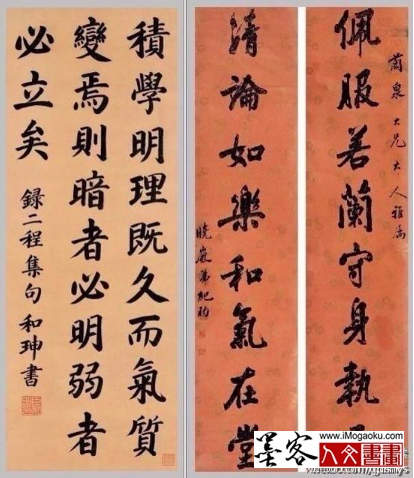 積學明理既久而氣質
變焉則暗者必明弱者
必立矣
錄二程集句 和珅書
蘭泉大兄大人雅屬
佩服若蘭守身執
清論如樂和氣在堂
曉嵐弟紀昀
墨客
www.iMogaoku.com
人文書畫